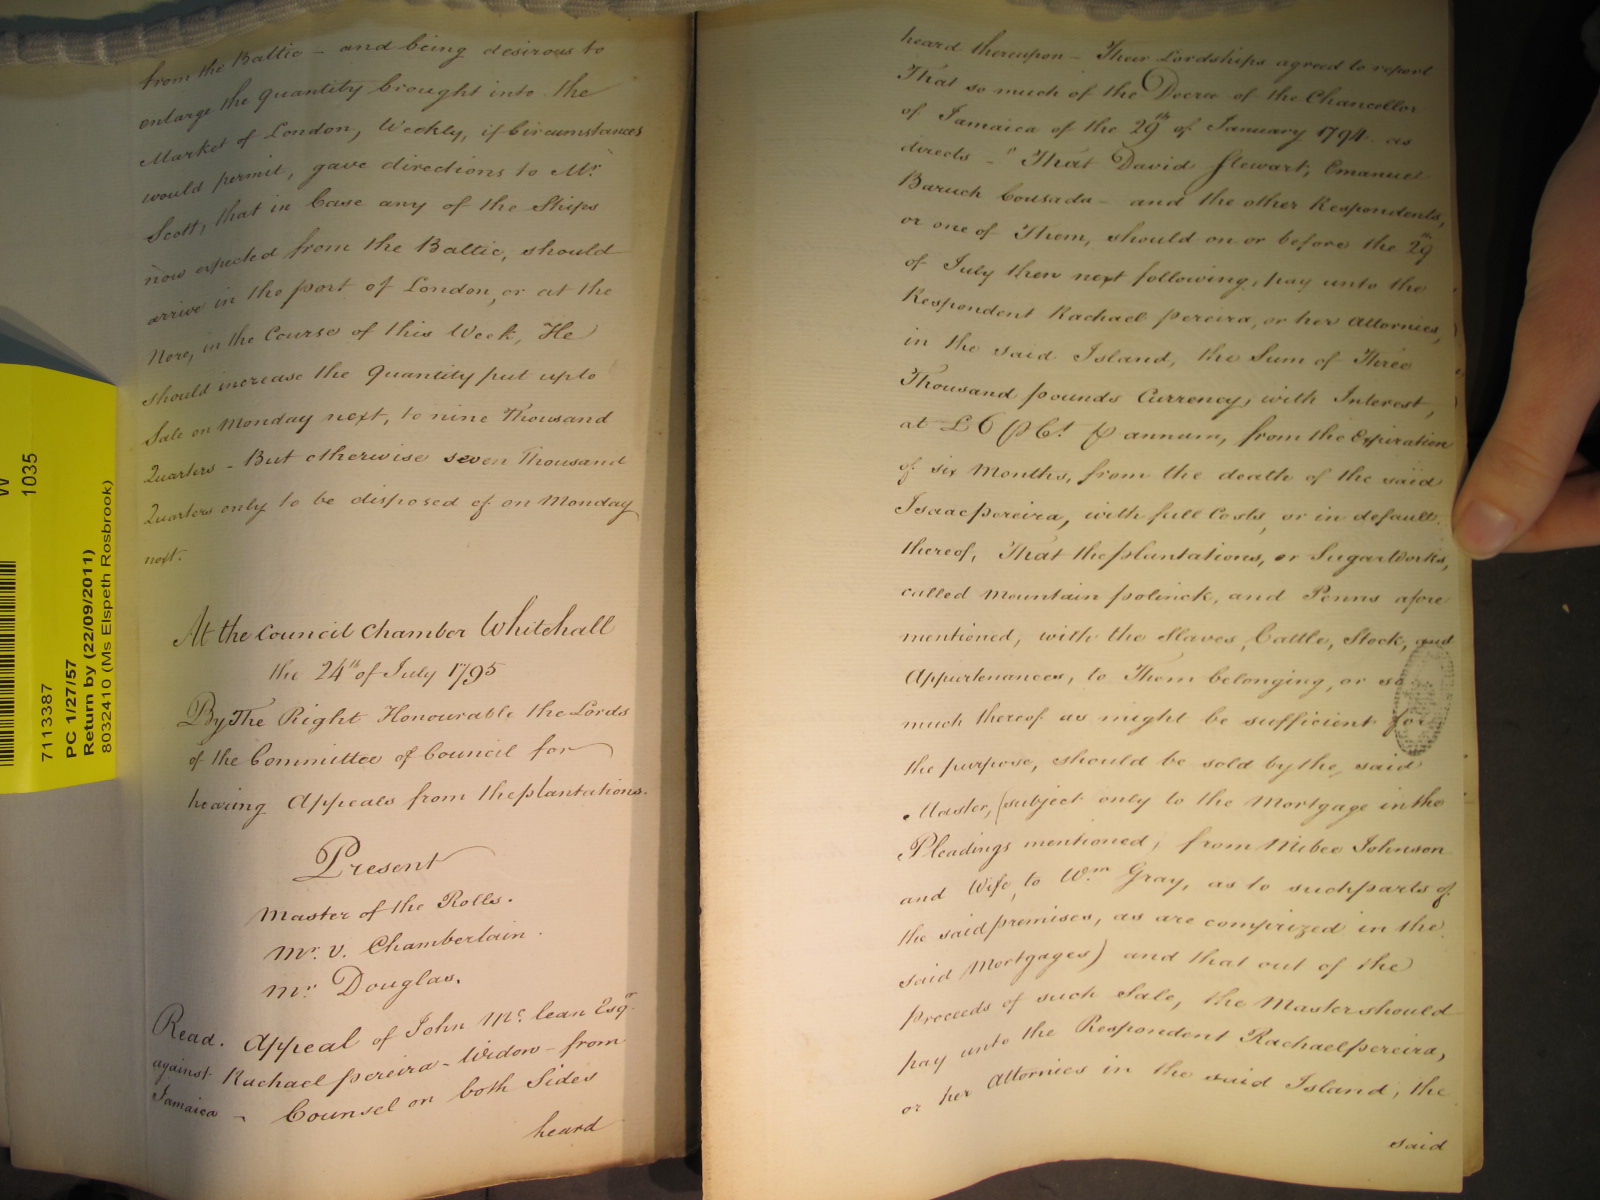 from the Baltic – and being desirous to
enlarge the quantity brought into the
Market of London, Weekly, if Circumstances
would permit, gave directions to Mr.
Scott, that in Case any of the Ships
now expected from the Baltic, should
arrive in the port of London, or at the
Nore, in the Course of this Week, He
should increase the Quantity put up to
Sale on Monday next, to nine Thousand
Quarters – But otherwise seven Thousand
Quarters only to be disposed of on Monday
next.
At the Council Chamber Whitehall
the 24th of July 1795
By The Right Honourable the Lords
of the Committee of Council for
hearing Appeals from the plantations.
Present
Master of the Rolls.
Mr. V. Chamberlain.
Mr. Douglas.
Read. Appeal of John Mc. lean Esqr.
against Rachael pereira – Widow – from
Jamaica – Counsel on both Sides
heard
W
1035
7113387
PC 1/27/57
Return by (22/09/2011)
8032410 (Ms Elspeth Rosbrook)
heard thereupon – Their Lordships agreed to report
That so much of the Decree of the Chancellor
of Jamaica of the 29th of January 1794 as
directs – " That David Stewart, Emanuel
Baruch Cousada – and the other Respondents,
or one of Them, should on or before the 29th
of July then next following, pay unto the
Respondent Rachael pereira, or her Attornies,
in the said Island, the Sum of Three
Thousand pounds Currency, with Interest,
at £6 p Ct. p annum, from the Expiration
of six Months, from the death of the said
Isaac pereira, with full Costs, or in default
thereof, That the plantations, or Sugar Works,
called Mountain polinck, and Penns afore
mentioned, with the Slaves, Cattle, Stock, and
Appurtenances, to Them belonging, or so
much thereof as might be sufficient for
the purpose, should be sold by the said
Master, (subject only to the Mortgage in the
Pleadings mentioned, from Mibee Johnson
and Wife, to Wm. Gray, as to such parts of
the said premises, as are comprized in the
said Mortgages) and that out of the
proceeds of such Sale, the Master should
pay unto the Respondent Rachael pereira,
or her Attornies in the said Island, the
said